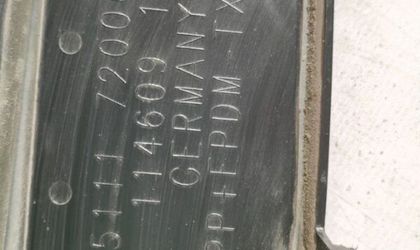 5111 7200
114609 1
GERMANY
PP+EPDM TX